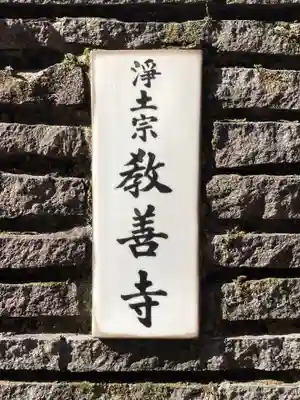 浄土宗教善寺